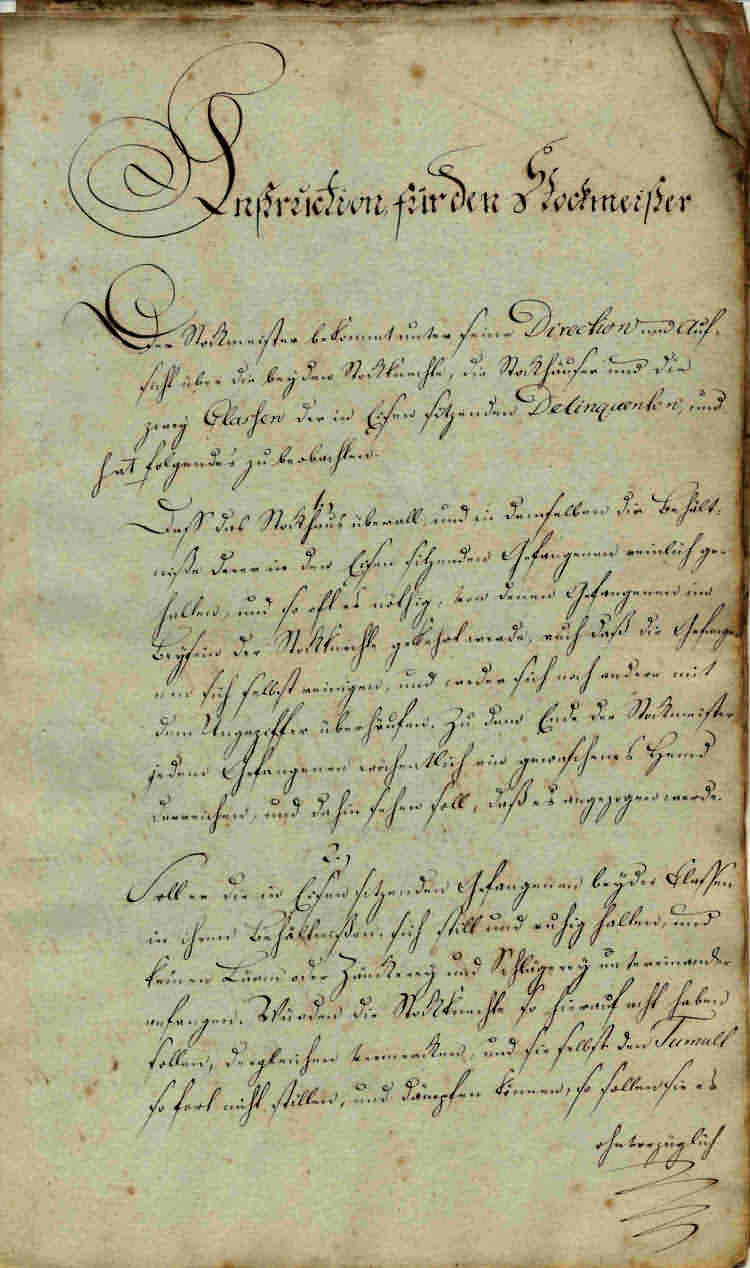 Instruction für den Stockmeister
Der Stockmeister bekommt unter seine Direction und Auf-
sicht über die beyden Stockknechte, die Stockhäuser und die
zwey Classen der in Eisen sitzenden Delinquenten, und
hat folgendes zu beobachten.
1.,
Dass das Stockhaus überall, und in demselben die Behält-
niße derer in den Eisen sitzenden Gefangenen reinlich ge-
halten, und so oft es nöthig, von denen Gefangenen im
Beysein der Stockknechte gekehrt werde, auch daß die Gefange-
nen sich selbst reinigen, und weder sich noch andere mit
dem Ungeziffer überhäufen. Zu dem Ende der Stockmeister
jedem Gefangenen wöchentlich ein gewaschenes Hemd
darreichen, und dahin sehen soll, daß es angezogen werde.
2.,
Soll er die in Eisen sitzenden Gefangenen beyder Classen
in ihren Behältnißen sich still und ruhig halten, und
keinen Lärm oder Zänckerey und Schlägerey untereinander
anfangen. Würden die Stockknechte so hierauf acht haben
sollen, dergleichen vermercken, und sie selbst den Tumult
so fort nicht stillen, und dämpfen können, so sollen sie es
ohnverzüglich